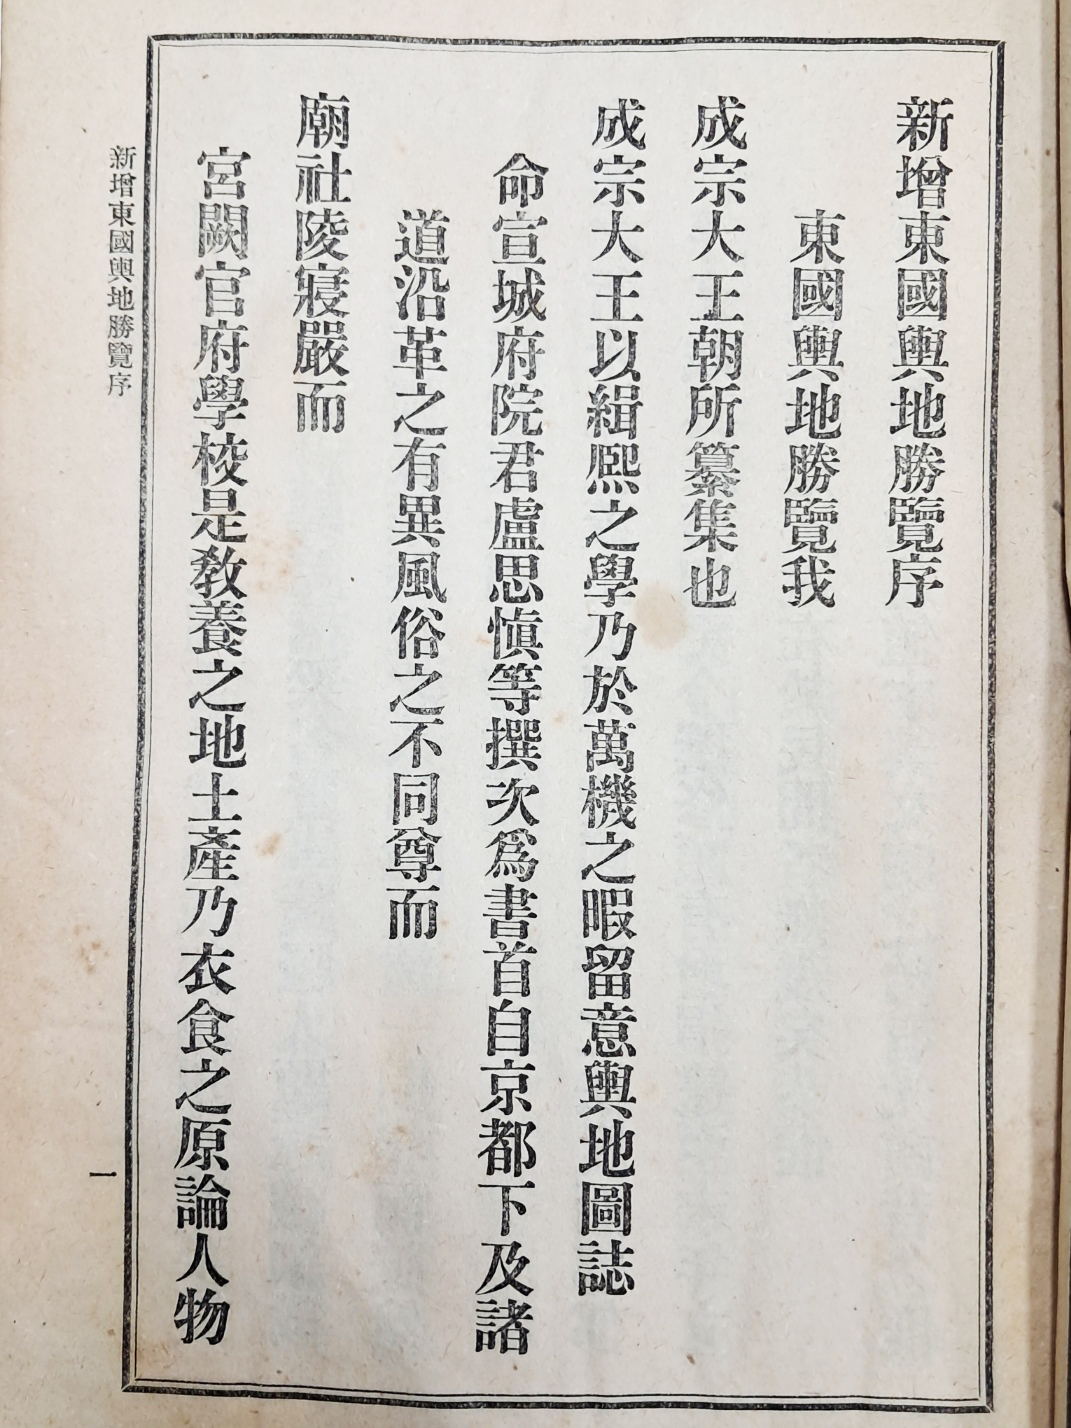 新增東國輿地勝覽序
東國輿地勝覽我
成宗大王朝所纂集也
成宗大王以緝熙之學乃於萬機之暇留意輿地圖誌
命宣城府院君盧思愼等撰次爲書首自京都下及諸
道沿革之有異風俗之不同尊而
廟社陵寢嚴而
宮闕官府學校是敎養之地土產乃衣食之原論人物
新增東國輿地勝覽序
一